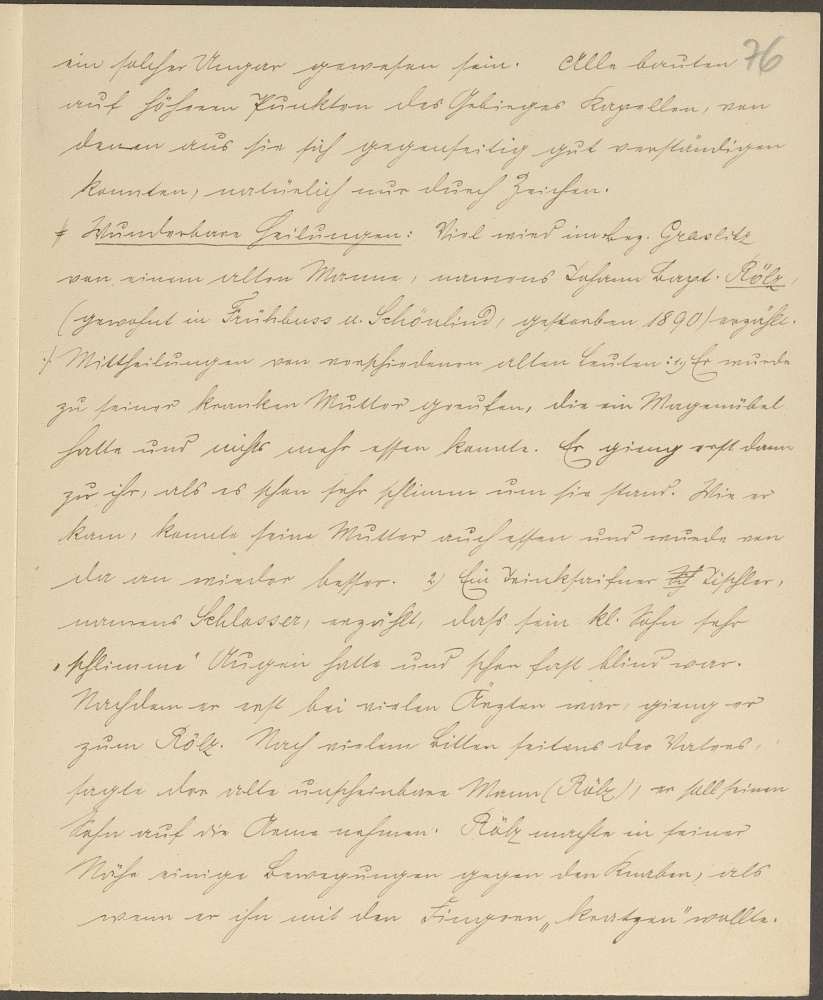 76
ein solcher Ungar gewesen sein. Alle bauten
auf höheren Punkten des Gebirges Kapellen, von
denen aus sie sich gegenseitig gut verständigen
konnten, natürlich nur durch Zeichen.
Wunderbare Heilungen: Viel wird im Bez. Graslitz
von einem alten Manne, namens Johann Bapt. Rölz,
(gewohnt in Frühbuss u. Schönlind, gestorben 1890) erzählt.
Mittheilungen von verschiedenen alten Leuten: 1) Er wurde
zu seiner kranken Mutter gerufen, die ein Magenübel
hatte und nichts mehr essen konnte. Er gieng erst dann
zu ihr, als es schon sehr schlimm um sie stand. Wie er
kam, konnte seine Mutter auch essen und wurde von
da an wieder besser. 2) Ein Trinksaifner Tischler,
namens Schlosser, erzählt, dass sein kl. Sohn sehr
„schlimme“ Augen hatte und schon fast blind war.
Nachdem er erst bei vielen Ärzten war, gieng er
zum Rölz. Nach vielem Bitten seitens des Vaters,
sagte der alte unscheinbare Mann (Rölz), er soll seinen
Sohn auf die Arme nehmen. Rölz machte in seiner
Nähe einige Bewegungen gegen den Knaben, als
wenn er ihn mit den Fingern „kratzen“ wollte.